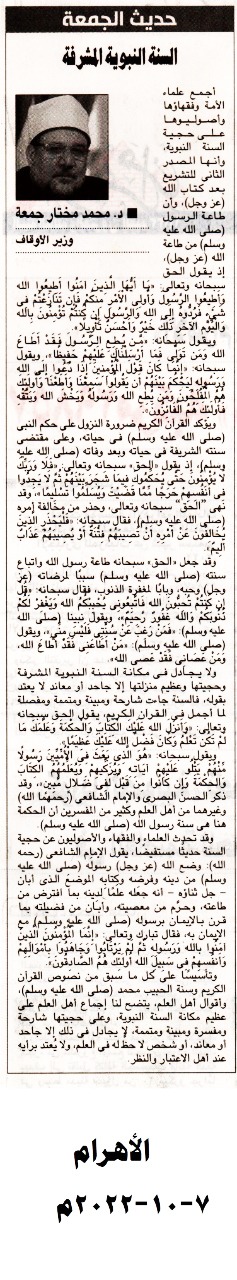 حديث الجمعة
السنة النبوية المشرفة
أجمع علماء
الأمة وفقهاؤها
وأصوليوها
على حجية
السنة النبوية،
وأنها المصدر
الثاني للتشريع
بعد كتاب الله
(عز وجل)، وأن
طاعة الرسول
(صلى الله عليه
وسلم) من طاعة
الله (عز وجل)،
إذ يقول الحق
■ د. محمد مختار جمعة
وزير الأوقاف
سبحانه وتعالى: «يَا أَيُّهَا الَّذِينَ آمَنُوا أَطِيعُوا اللهَ
وَأَطِيعُوا الرَّسُولَ وَأُولِي الْأَمْرِ مِنكُمْ فَإِن تَنَازَعْتُمْ فِي
شَيْءٍ فَرُدُّوهُ إِلَى اللهِ وَالرَّسُولِ إِن كُنتُمْ تُؤْمِنُونَ بِاللهِ
وَالْيَوْمِ الْآخِرِ ذَلِكَ خَيْرٌ وَأَحْسَنُ تَأْوِيلًا».
ويقول سبحانه: «مَّن يُطِعِ الرَّسُولَ فَقَدْ أَطَاعَ
اللهَ وَمَن تَوَلَّى فَمَا أَرْسَلْنَاكَ عَلَيْهِمْ حَفِيظًا»، ويقول
سبحانه: «إِنَّمَا كَانَ قَوْلَ الْمُؤْمِنِينَ إِذَا دُعُوا إِلَى اللهِ
وَرَسُولِهِ لِيَحْكُمَ بَيْنَهُمْ أَن يَقُولُوا سَمِعْنَا وَأَطَعْنَا وَأُولَئِكَ
هُمُ الْمُفْلِحُونَ وَمَن يُطِعِ اللهَ وَرَسُولَهُ وَيَخْشَ اللهَ وَيَتَّقْهِ
فَأُولَئِكَ هُمُ الْفَائِزُونَ».
ويؤكد القرآن الكريم ضرورة النزول على حكم النبي
(صلى الله عليه وسلم) في حياته، وعلى مقتضى
سنته الشريفة في حياته وبعد وفاته (صلى الله عليه
وسلم)، إذ يقول «الحق» سبحانه وتعالى: «فَلَا وَرَبِّكَ
لَا يُؤْمِنُونَ حَتَّى يُحَكِّمُوكَ فِيمَا شَجَرَ بَيْنَهُمْ ثُمَّ لَا يَجِدُوا
فِي أَنفُسِهِمْ حَرَجًا مِّمَّا قَضَيْتَ وَيُسَلِّمُوا تَسْلِيمًا»، وقد
نهى «الحق» سبحانه وتعالى، وحذر من مخالفة أمره
(صلى الله عليه وسلم)، فقال سبحانه: «فَلْيَحْذَرِ الَّذِينَ
يُخَالِفُونَ عَنْ أَمْرِهِ أَن تُصِيبَهُمْ فِتْنَةٌ أَوْ يُصِيبَهُمْ عَذَابٌ
أَلِيمٌ».
وقد جعل «الحق» سبحانه طاعة رسول الله واتباع
سنته (صلى الله عليه وسلم) سبيلًا لمرضاته (عز
وجل) وحبه، وبابًا لمغفرة الذنوب، فقال سبحانه: «قُلْ
إِن كُنتُمْ تُحِبُّونَ اللهَ فَاتَّبِعُونِي يُحْبِبْكُمُ اللهُ وَيَغْفِرْ لَكُمْ
ذُنُوبَكُمْ وَاللهُ غَفُورٌ رَّحِيمٌ»، ويقول نبينا (صلى الله
عليه وسلم): «فَمَنْ رَغِبَ عَنْ سُنَّتِي فَلَيْسَ مِنِّي»، ويقول
(صلى الله عليه وسلم): «مَنْ أَطَاعَنِي فَقَدْ أَطَاعَ اللهَ،
وَمَنْ عَصَانِي فَقَدْ عَصَى اللهَ».
ولا يجادل في مكانة السنة النبوية المشرفة
وحجيتها وعظيم منزلتها إلا جاحد أو معاند لا يعتد
بقوله، فالسنة جاءت شارحة ومبينة ومتممة ومفصلة
لما أجمل في القرآن الكريم، يقول الحق سبحانه
وتعالى: «وَأَنزَلَ اللهُ عَلَيْكَ الْكِتَابَ وَالْحِكْمَةَ وَعَلَّمَكَ مَا
لَمْ تَكُن تَعْلَمُ وَكَانَ فَضْلُ اللهِ عَلَيْكَ عَظِيمًا».
ويقول سبحانه: «هُوَ الَّذِي بَعَثَ فِي الْأُمِّيِّينَ رَسُولًا
مِّنْهُمْ يَتْلُو عَلَيْهِمْ آيَاتِهِ وَيُزَكِّيهِمْ وَيُعَلِّمُهُمُ الْكِتَابَ
وَالْحِكْمَةَ وَإِن كَانُوا مِن قَبْلُ لَفِي ضَلَالٍ مُّبِينٍ»، وقد
ذكر الحسن البصري والإمام الشافعي (رحمهما الله)
وغيرهما من أهل العلم وكثير من المفسرين أن الحكمة
هنا هي سنة رسول الله (صلى الله عليه وسلم).
وقد تحدث العلماء والفقهاء والأصوليون عن حجية
السنة حديثًا مستفيضًا، يقول الإمام الشافعي (رحمه
الله): وضع الله (عز وجل) رسوله (صلى الله عليه
وسلم) من دينه وفرضه وكتابه الموضع الذي أبان
- جل ثناؤه - أنه جعله علمًا لدينه بما افترض من
طاعته، وحرّم من معصيته، وأبان من فضيلته بما
قرن بالإيمان برسوله (صلى الله عليه وسلم) مع
الإيمان به، فقال تبارك وتعالى: «إِنَّمَا الْمُؤْمِنُونَ الَّذِينَ
آمَنُوا بِاللهِ وَرَسُولِهِ ثُمَّ لَمْ يَرْتَابُوا وَجَاهَدُوا بِأَمْوَالِهِمْ
وَأَنفُسِهِمْ فِي سَبِيلِ اللهِ أُولَئِكَ هُمُ الصَّادِقُونَ».
وتأسيسًا على كل ما سبق من نصوص القرآن
الكريم وسنة الحبيب محمد (صلى الله عليه وسلم)،
وأقوال أهل العلم، يتضح لنا إجماع أهل العلم على
عظيم مكانة السنة النبوية، وعلى حجيتها شارحة
ومفسرة ومبينة ومتممة، لا يجادل في ذلك إلا جاحد
أو معاند، أو شخص لا حظ له في العلم، ولا يُعتد برأيه
عند أهل الاعتبار والنظر.
الأهرام
٧-١٠-٢٠٢٢م